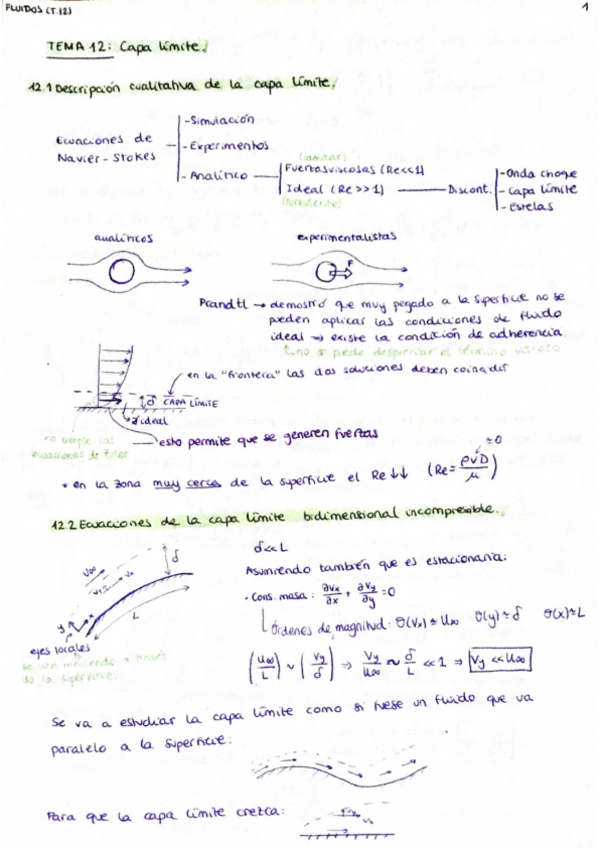 FLUIDOS (T.12)
1
TEMA 12: Capa límite.
12.1 Descripción cualitativa de la capa límite.
Ecuaciones de Navier-Stokes
-Simulación
-Experimentos
-Analítico
(laminar)
Fuerzas viscosas (Re<<1)
Ideal (Re>>1)
(turbulento)
Discont.
-Onda choque
-Capa límite
-Estelas
analíticos
experimentalistas
F
Prandtl → demostró que muy pegado a la superficie no se
pueden aplicar las condiciones de fluido
ideal → existe la condición de adherencia
no se puede despreciar el término viscoso
en la "frontera" las dos soluciones deben coincidir
δ CAPA LÍMITE
ideal
no cumple las
ecuaciones de Euler
esto permite que se generen fuerzas
* en la zona muy cerca de la superficie el Re↓↓ (Re = ρvD/μ) ≈0
12.2 Ecuaciones de la capa límite bidimensional incompresible.
δ<<L
Asumiendo también que es estacionaria:
· Cons. masa: ∂vx/∂x + ∂vy/∂y = 0
Órdenes de magnitud: O(Vx) ≈ U∞ O(y) ≈ δ O(x) ≈ L
(U∞/L) ~ (Vy/δ) ⇒ Vy/U∞ ~ δ/L << 1 ⇒ Vy << U∞
U∞
vx
δ
L
y
x
ejes locales
se van moviendo a través
de la superficie.
Se va a estudiar la capa límite como si fuese un fluido que va
paralelo a la superficie:
Para que la capa límite crezca:
Vx